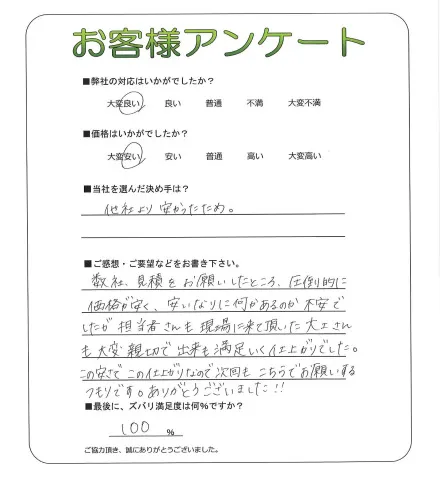 お客様アンケート
■弊社の対応はいかがでしたか？
大変良い 良い 普通 不満 大変不満
■価格はいかがでしたか？
大変安い 安い 普通 高い 大変高い
■当社を選んだ決め手は？
他社より安かったため。
■ご感想・ご要望などをお書き下さい。
数社、見積をお願いしたところ、圧倒的に
価格が安く、安いなりに何かあるのか不安で
したが担当者さんも現場に来て頂いた大工さん
も大変親切で出来も満足いく仕上がりでした。
この安さでこの仕上がりなので次回もこちらでお願いする
つもりです。ありがとうございました!!
■最後に、ズバリ満足度は何%ですか？
100 %
ご協力頂き、誠にありがとうございました。